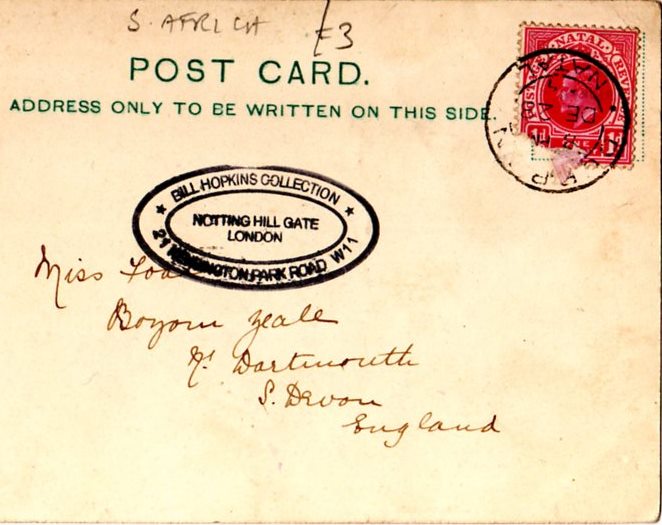 S. AFRICA £3
POST CARD.
ADDRESS ONLY TO BE WRITTEN ON THIS SIDE.
NATAL REVENUE
NATAL
DE
BILL HOPKINS COLLECTION
NOTTING HILL GATE
LONDON
21 KENSINGTON PARK ROAD W11
Miss
Bozom Zeale
Nr Dartmouth
S. Devon
England